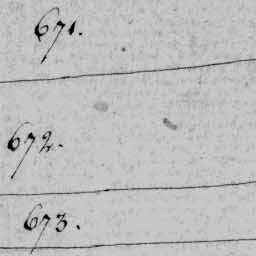 671.
672.
673.